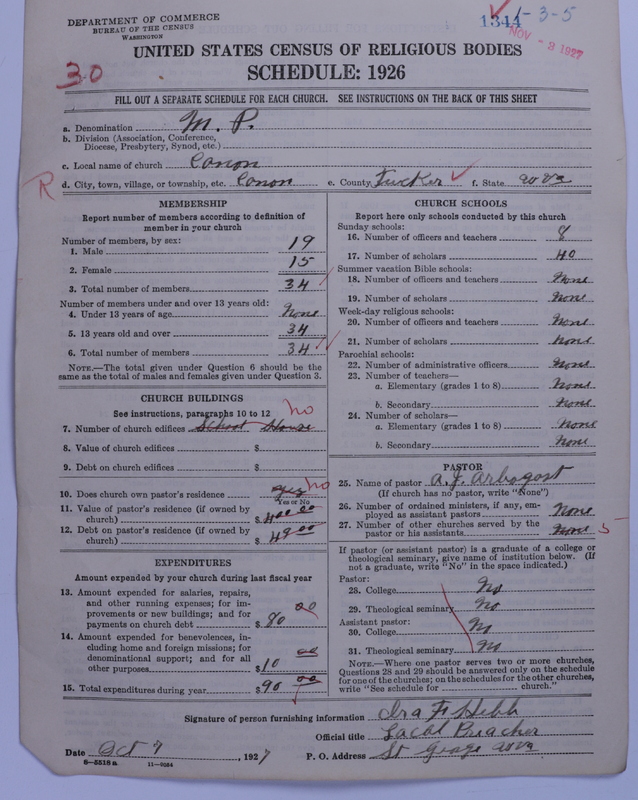 DEPARTMENT OF COMMERCE
BUREAU OF THE CENSUS
WASHINGTON
1344 1-3-5
NOV - 2 1927
UNITED STATES CENSUS OF RELIGIOUS BODIES
SCHEDULE: 1926
30
FILL OUT A SEPARATE SCHEDULE FOR EACH CHURCH. SEE INSTRUCTIONS ON THE BACK OF THIS SHEET
a. Denomination M. P.
b. Division (Association, Conference, Diocese, Presbytery, Synod, etc.)
c. Local name of church Canon
R
d. City, town, village, or township, etc. Canon e. County Tucker f. State W Va
MEMBERSHIP
Report number of members according to definition of member in your church
Number of members, by sex:
1. Male 19
2. Female 15
3. Total number of members 34
Number of members under and over 13 years old:
4. Under 13 years of age None
5. 13 years old and over 34
6. Total number of members 34
NOTE.—The total given under Question 6 should be the same as the total of males and females given under Question 3.
CHURCH BUILDINGS
See instructions, paragraphs 10 to 12
no
7. Number of church edifices School House
8. Value of church edifices $
9. Debt on church edifices $
10. Does church own pastor's residence yes no
Yes or No
11. Value of pastor's residence (if owned by church) $400.00
12. Debt on pastor's residence (if owned by church) $49.00
EXPENDITURES
Amount expended by your church during last fiscal year
13. Amount expended for salaries, repairs, and other running expenses; for improvements or new buildings; and for payments on church debt $80 00
14. Amount expended for benevolences, including home and foreign missions; for denominational support; and for all other purposes $10 00
15. Total expenditures during year $90 00
CHURCH SCHOOLS
Report here only schools conducted by this church
Sunday schools:
16. Number of officers and teachers 8
17. Number of scholars 40
Summer vacation Bible schools:
18. Number of officers and teachers None
19. Number of scholars None
Week-day religious schools:
20. Number of officers and teachers None
21. Number of scholars None
Parochial schools:
22. Number of administrative officers None
23. Number of teachers—
a. Elementary (grades 1 to 8) None
b. Secondary None
24. Number of scholars—
a. Elementary (grades 1 to 8) None
b. Secondary None
PASTOR
25. Name of pastor A. J. Arbogast
(If church has no pastor, write "None")
26. Number of ordained ministers, if any, employed as assistant pastors None
27. Number of other churches served by the pastor or his assistants None 5
If pastor (or assistant pastor) is a graduate of a college or theological seminary, give name of institution below. (If not a graduate, write "No" in the space indicated.)
Pastor:
28. College No
29. Theological seminary No
Assistant pastor:
30. College No
31. Theological seminary No
NOTE.—Where one pastor serves two or more churches, Questions 28 and 29 should be answered only on the schedule for one of the churches; on the schedules for the other churches, write "See schedule for church."
Signature of person furnishing information Ira F Hebb
Official title Local Preacher
Date Oct 7, 1927 P. O. Address St George W Va
8-5518 a 11-9084